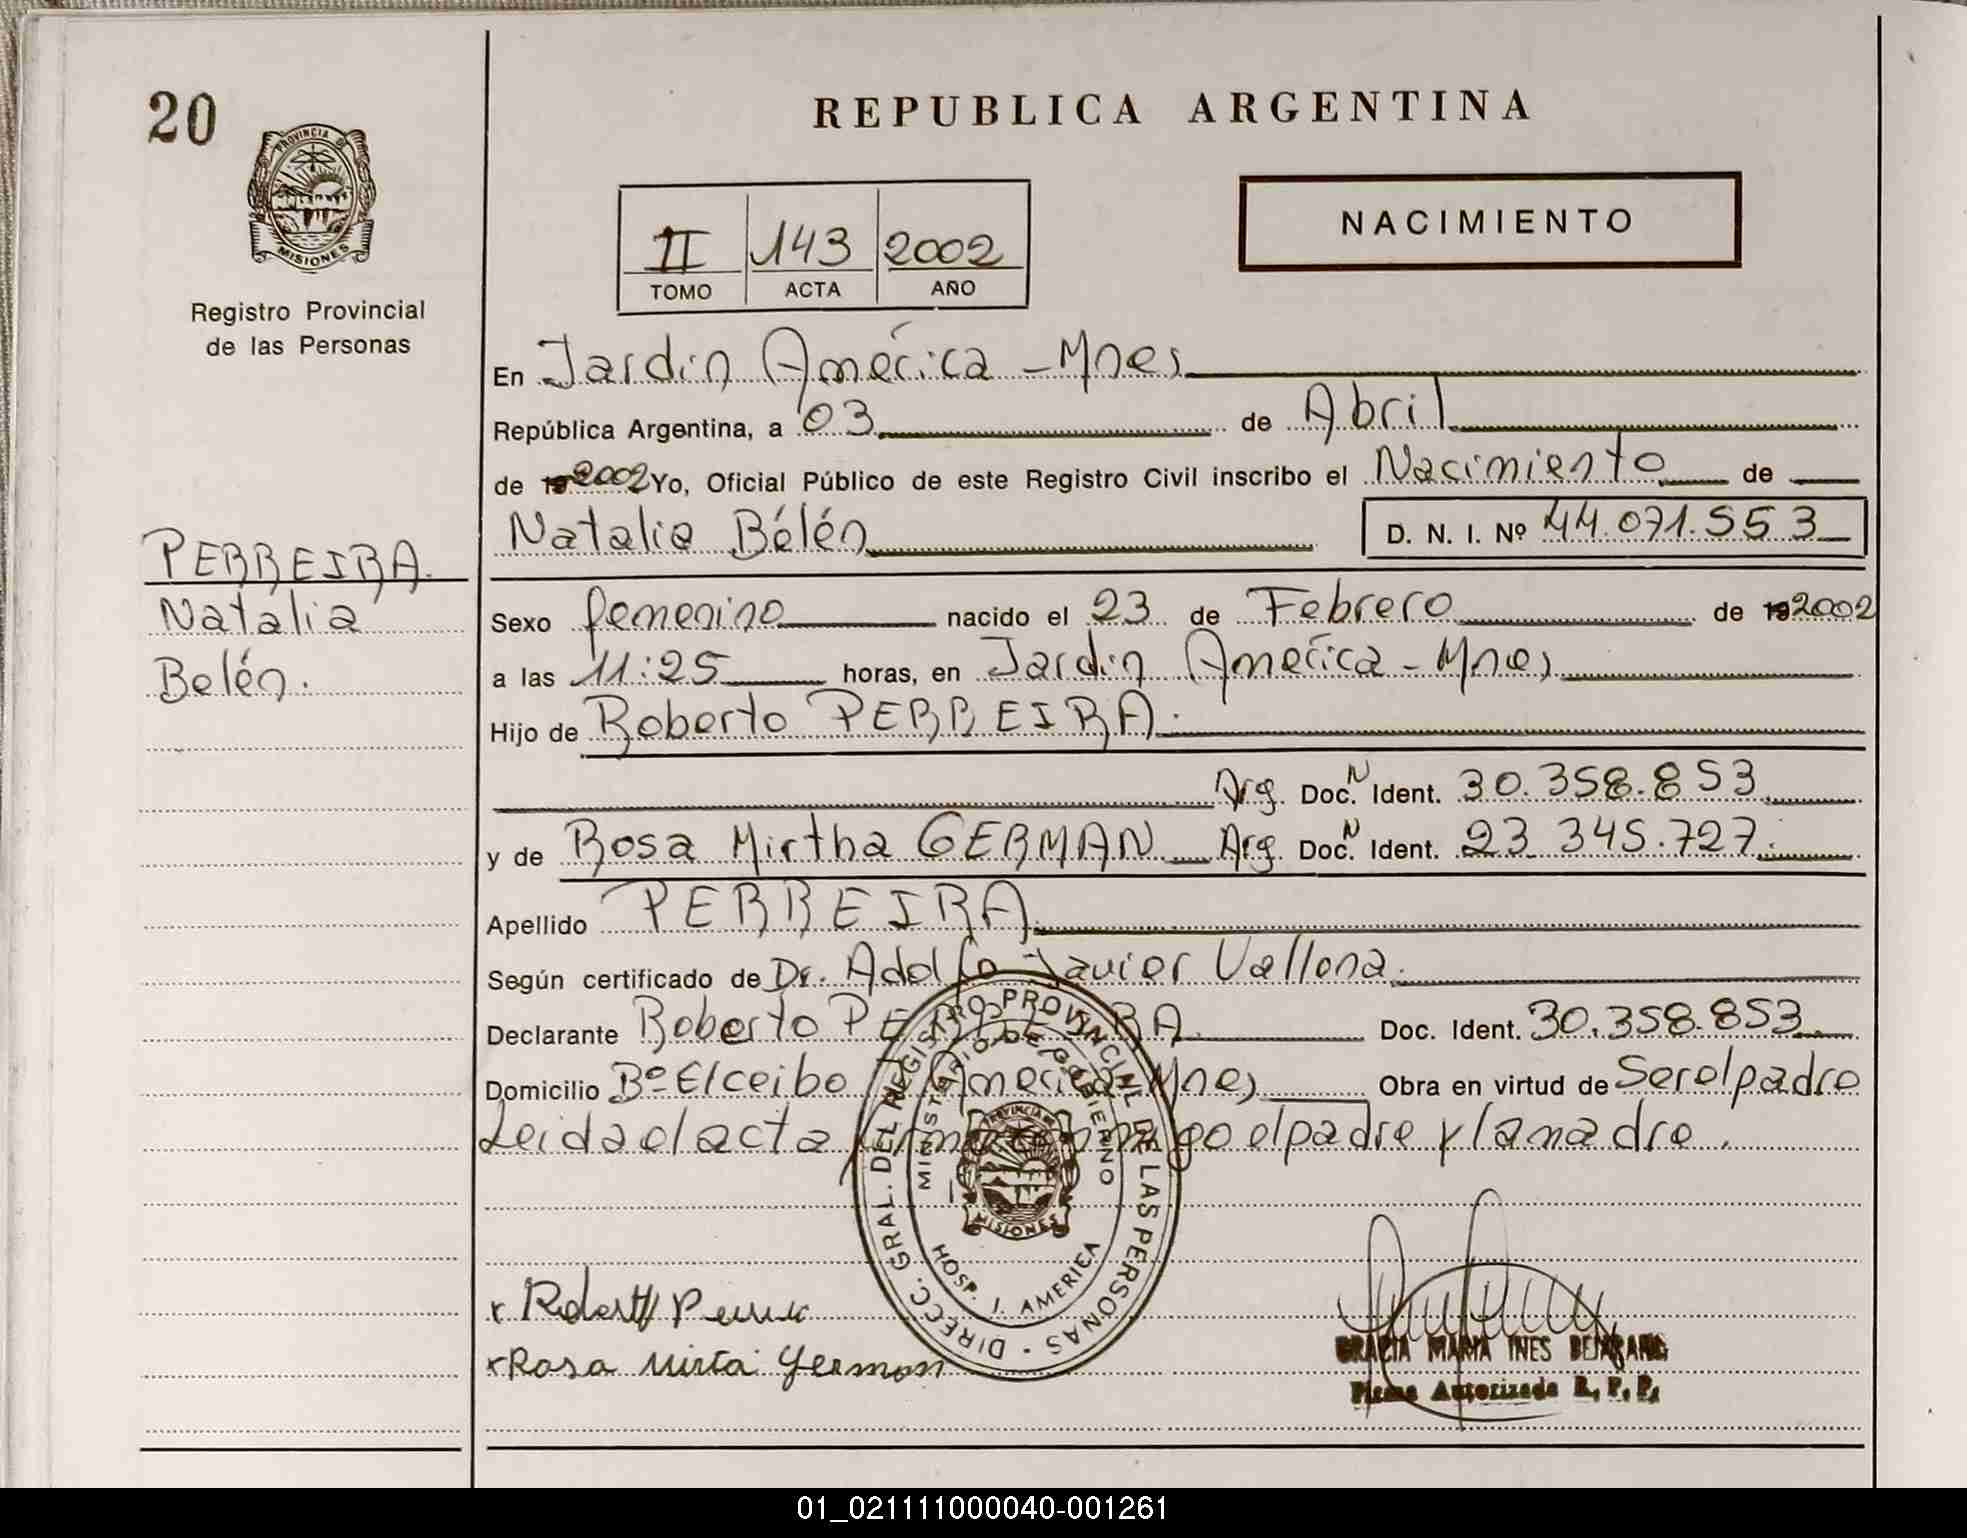 20
REPUBLICA ARGENTINA
PROVINCIA DE
MISIONES
Registro Provincial
de las Personas
II 143 2002
TOMO ACTA AÑO
NACIMIENTO
En Jardín América - Mnes
República Argentina, a 03 de Abril
de 19 2002 Yo, Oficial Público de este Registro Civil inscribo el Nacimiento de
Natalia Bélén D. N. I. Nº 44.071.553
PERREIRA.
Natalia
Belén.
Sexo femenino nacido el 23 de Febrero de 19 2002
a las 11:25 horas, en Jardín América - Mnes
Hijo de Roberto PERREIRA.
Arg. Doc. N Ident. 30.358.853
y de Rosa Mirtha GERMAN Arg. Doc. N Ident. 23 345.727.
Apellido PERREIRA.
Según certificado de Dr. Adolfo Javier Vallona.
Declarante Roberto PERREIRA. Doc. Ident. 30.358.853
Domicilio Bº El ceibo J. América Mnes Obra en virtud de Ser el padre
Leida el acta firman conmigo el padre y la madre.
DIRECC. GRAL. DEL REGISTRO PROVINCIAL DE LAS PERSONAS
MINISTERIO DE GOBIERNO
PROVINCIA DE
MISIONES
HOSP. J. AMERICA
x Roberto Perreira
x Rosa Mirta German
GRACIA MARIA INES BEJARANO
Firma Autorizada R. P. P.
01_021111000040-001261